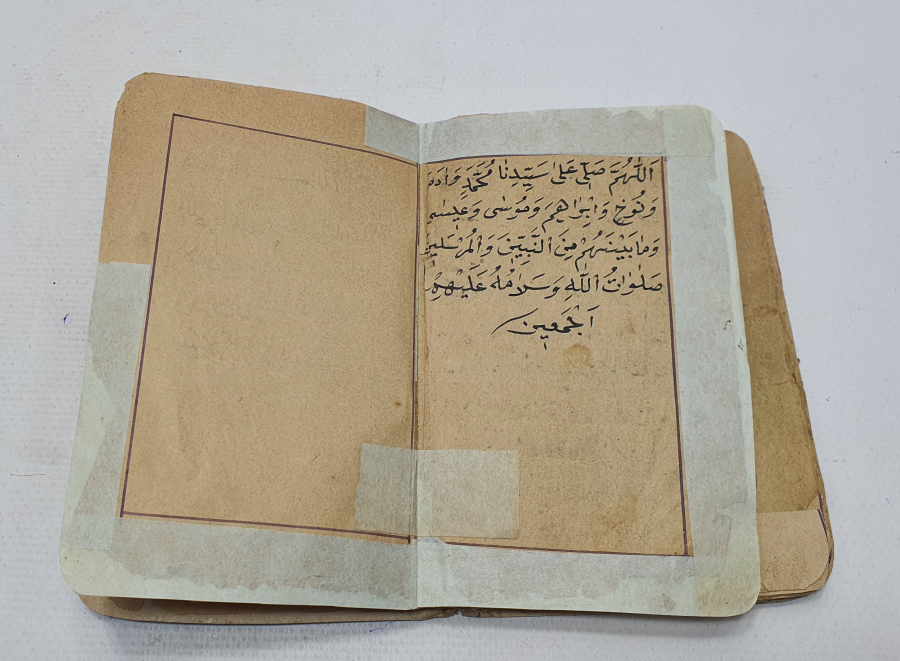 اَللّٰهُمَّ صَلِّ عَلٰى سَيِّدِنٰا مُحَمَّدٍ وَاٰدَمَ
وَنُوحٍ وَاِبْرٰاهِيمَ وَمُوسٰى وَعِيسٰى
وَمٰا بَيْنَهُمْ مِنَ النَّبِيّٖنَ وَالْمُرْسَلِينَ
صَلَوٰاتُ اللّٰهِ وَسَلَامُهُ عَلَيْهِمْ
اَجْمَعِينَ